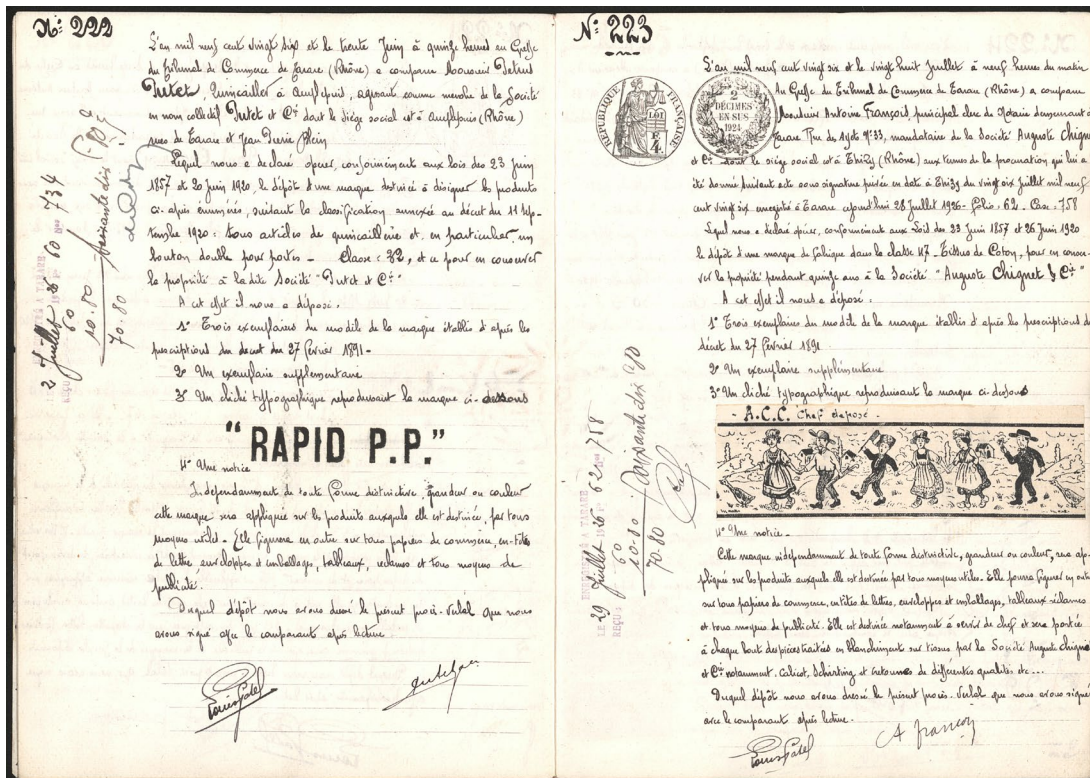 N: 222
L'an mil neuf cent vingt six et le trente Juin à quinze heures au Greffe
du Tribunal de Commerce de Tarare (Rhône) a comparu Monsieur
Dutet, Quincailler à Amplepuis, agissant comme membre de la Société
en nom collectif Dutet et Cie dont le siège social est à Amplepuis (Rhône)
rues de Tarare et Jean Pierre Blein
Lequel nous a déclaré opérer, conformément aux lois des 23 Juin
1857 et 26 Juin 1920, le dépôt d'une marque destinée à désigner les produits
ci-après énumérés, suivant la classification annexée au décret du 11 Sep-
tembre 1920: tous articles de quincaillerie et, en particulier, un
bouton double pour portes - Classe: 32, et ce pour en conserver
la propriété à la dite Société "Dutet et Cie"
A cet effet il nous a déposé:
1° Trois exemplaires du modèle de la marque établis d'après les
prescriptions du décret du 27 Février 1891-
2° Un exemplaire supplémentaire
3° Un cliché typographique reproduisant la marque ci-dessous
"RAPID P.P."
4° Une notice
Indépendamment de toute forme distinctive, grandeur ou couleur
cette marque sera appliquée sur les produits auxquels elle est destinée, par tous
moyens utiles - Elle figurera en outre sur tous papiers de commerce, en-têtes
de lettre, enveloppes et emballages, tableaux, réclames et tous moyens de
publicité.
Duquel dépôt nous avons dressé le présent procès-verbal que nous
avons signé avec le comparant après lecture.
ENREGISTRÉ A TARARE
LE 2 Juillet 1926 F° 60 N° 734
REÇU:
60
10.80
70.80
Soixante dix f. 80c
N: 223
RÉPUBLIQUE FRANÇAISE
LOI
F. 4.
2
DÉCIMES
EN SUS
1924
L'an mil neuf cent vingt six et le vingt huit Juillet à neuf heures du matin
Au Greffe du Tribunal de Commerce de Tarare (Rhône) a comparu
Monsieur Antoine François, principal clerc de Notaire demeurant à
Tarare Rue de N° 33, mandataire de la Société Auguste Chignet
et Cie dont le siège social est à Thizy (Rhône) aux termes de la procuration qui lui a
été donné suivant acte sous signature privée en date à Thizy du vingt six Juillet mil neuf
cent vingt six enregistré à Tarare aujourd'hui 28 Juillet 1926 - Folio: 62 - Case: 758
Lequel nous a déclaré opérer, conformément aux Lois des 23 Juin 1857 et 26 Juin 1920
le dépôt d'une marque de Fabrique dans la classe 47- Tissus de Coton, pour en conser-
ver la propriété pendant quinze ans à la Société "Auguste Chignet & Cie"
A cet effet il nous a déposé:
1° Trois exemplaires du modèle de la marque établis d'après les prescriptions du
décret du 27 Février 1891
2° Un exemplaire supplémentaire
3° Un cliché typographique reproduisant la marque ci-dessous
- A.C.C. Chef déposé -
4° Une notice -
Cette marque indépendamment de toute forme distinctive, grandeur ou couleur, sera ap-
pliquée sur les produits auxquels elle est destinée par tous moyens utiles. Elle pourra figurer en outre
sur tous papiers de commerce, entêtes de lettres, enveloppes et emballages, tableaux réclames
et tous moyens de publicité. Elle est destinée notamment à servir de chef et sera portée
à chaque bout des pièces traitées en blanchiment sur tissus par la Société Auguste Chignet
et Cie notamment. Calicot, Schirting et cretonnes de différentes qualités etc...
Duquel dépôt nous avons dressé le présent procès-verbal que nous avons signé
avec le comparant après lecture.
A François
ENREGISTRÉ A TARARE
LE 29 Juillet 1926 F° 62 N° 758
REÇU:
60
10.80
70.80
Soixante dix f 80